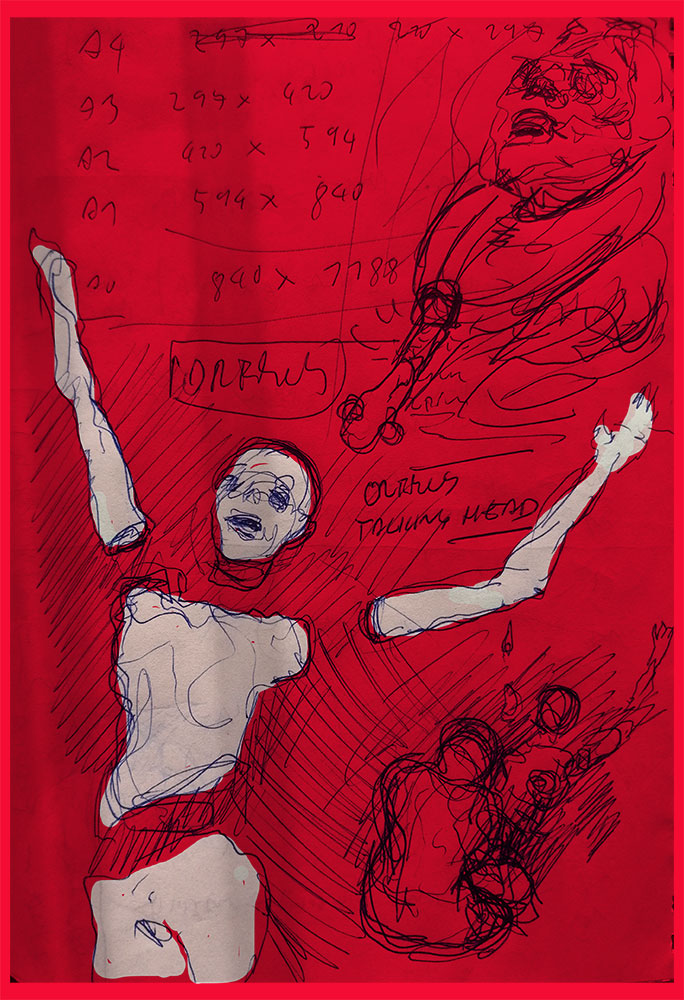 A4 297 x 210 210 x 297
A3 297 x 420
A2 420 x 594
A1 594 x 840
A0 840 x 1188
ORPHEUS
ORPHEUS
TALKING HEAD